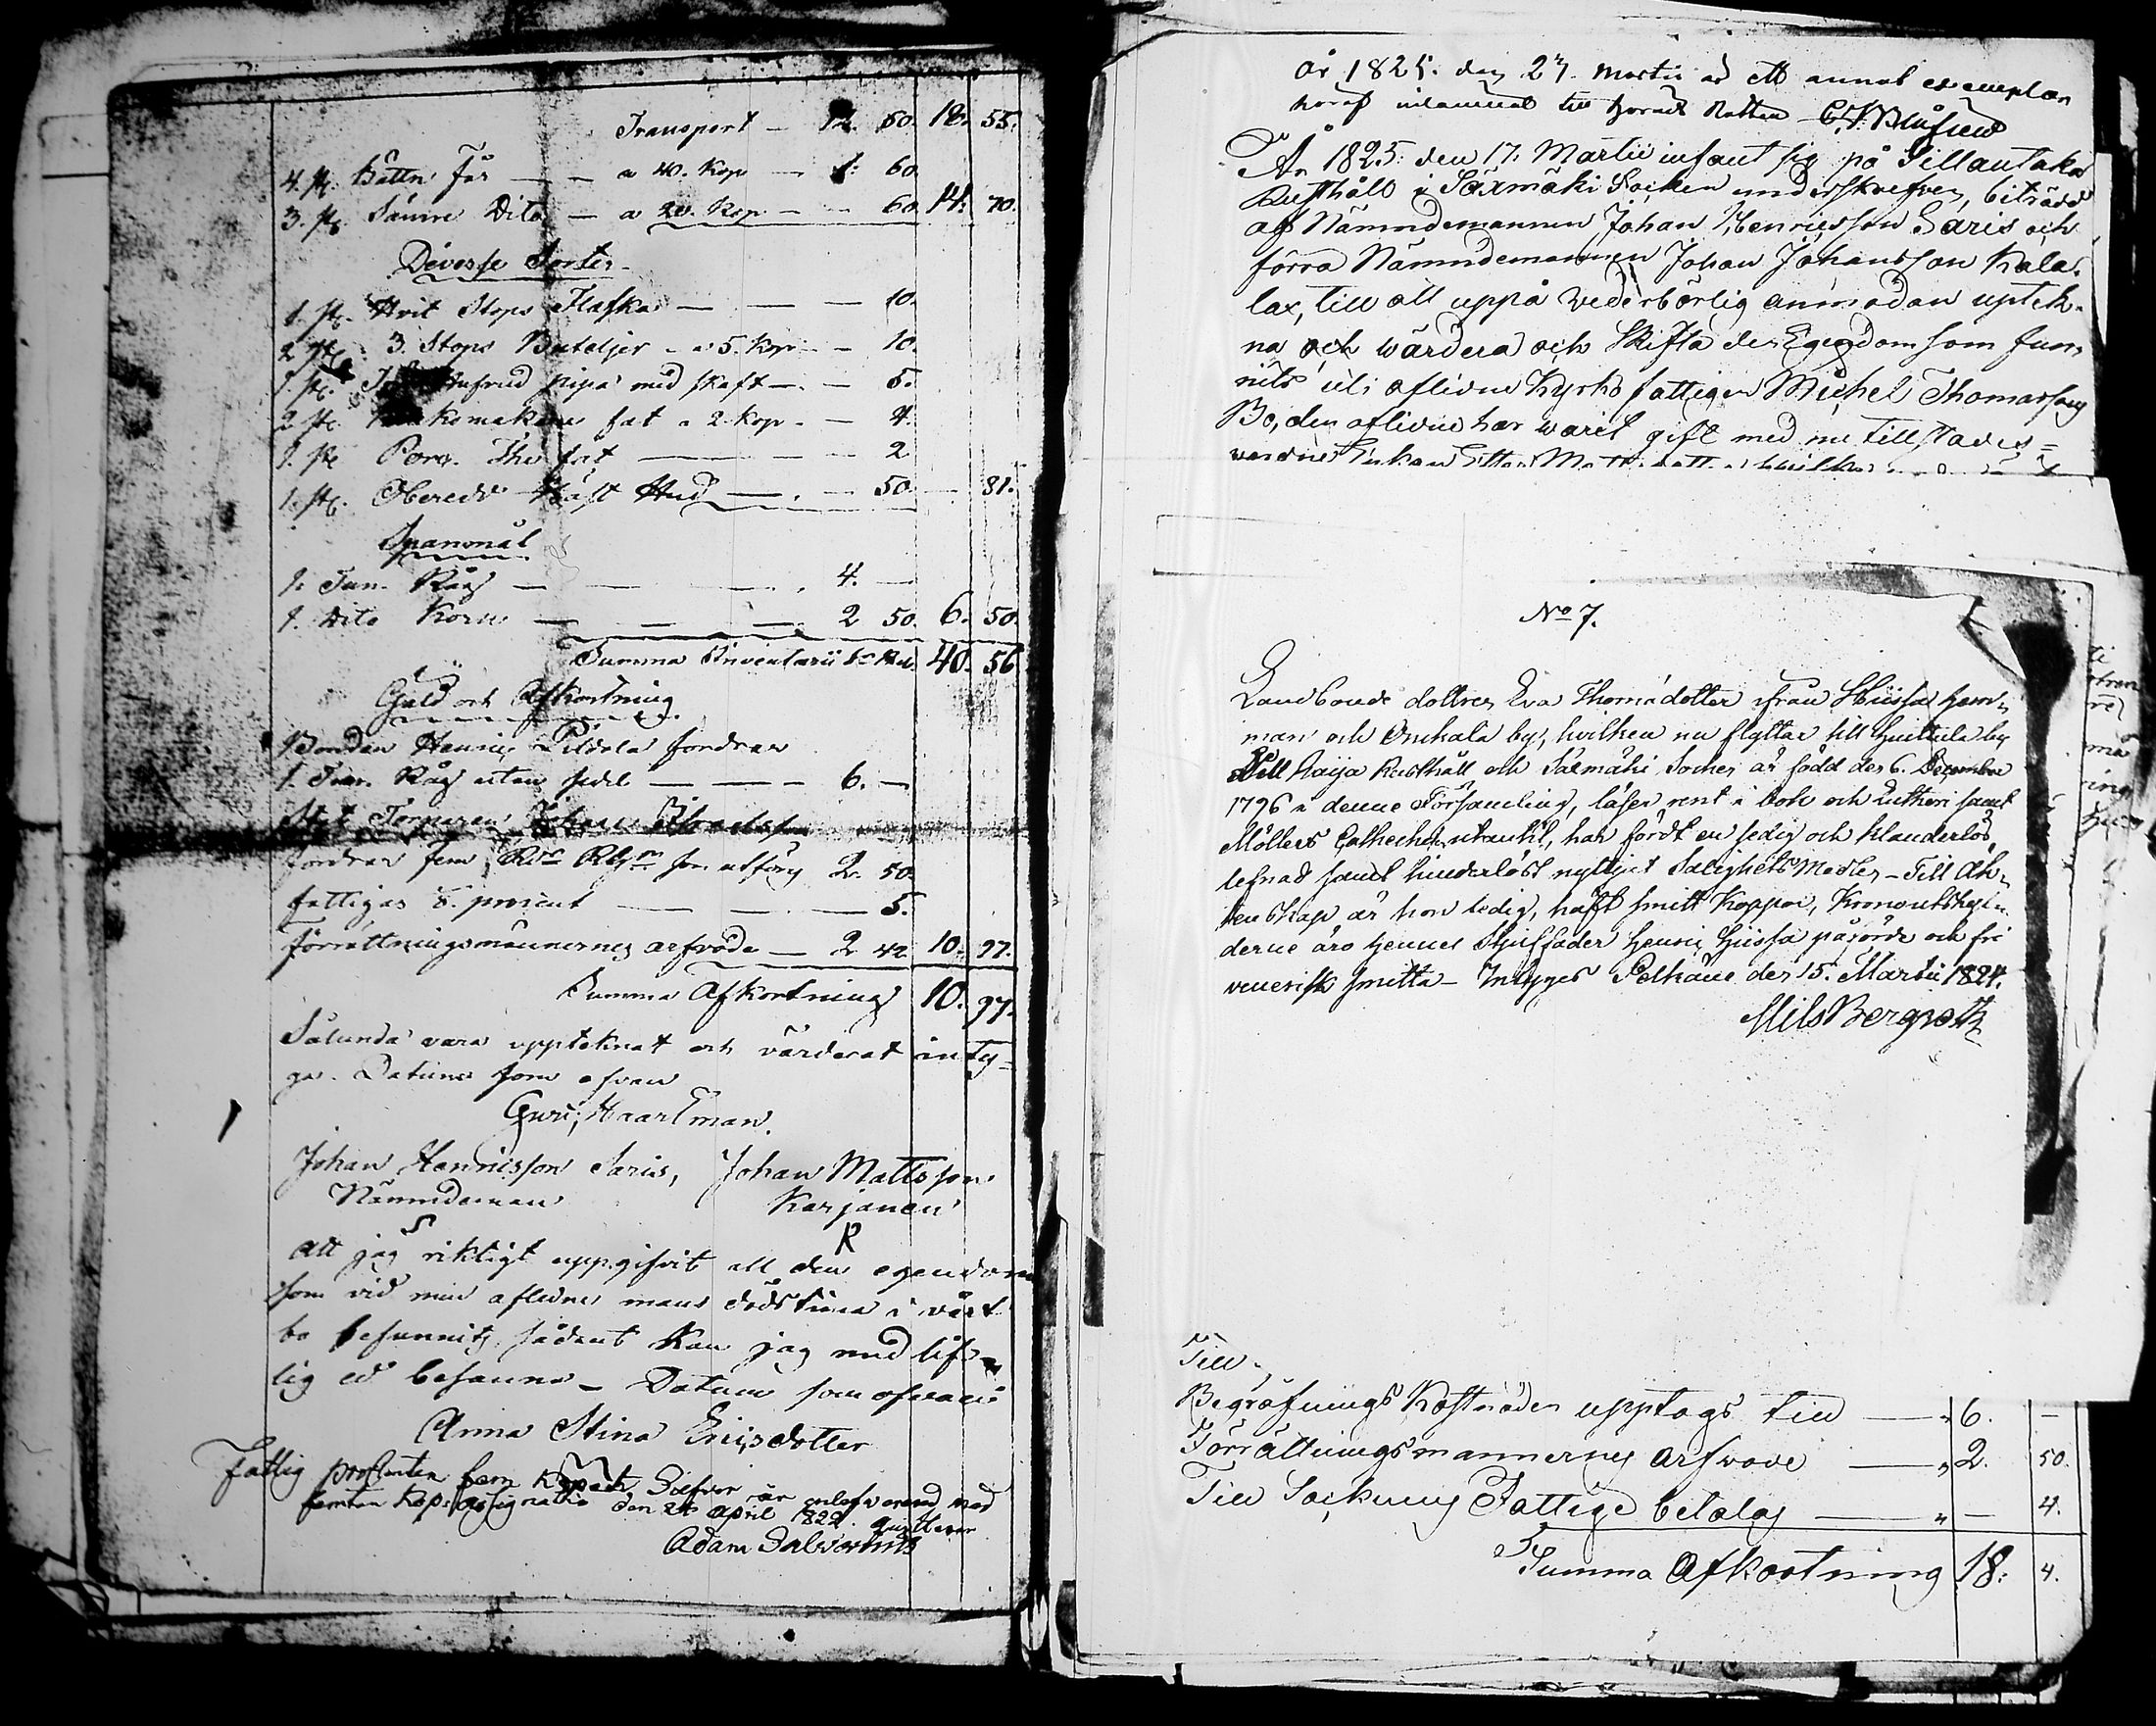 Transport — 12. 60. 18. 55.
4. st. Bättre Får — — a 40. kop — 1: 60.
3. st. Sämre Dito — a 20. kop — — 60. 14. 70.
Diverse Sorter
1. st. Hvit Stops Flaska — — — 10.
2 st. 3. Stops Buteljer — a 5. kop — — 10.
1 st. pipa med skaft — . — 5.
2 st. fat a 2. kop. — 4.
1. st. Pors. The fat — — — 2
1. st. Oberedd Häst Hud — . — 50. — 81.
Spanmål
1. Tun. Råg — — — . 4. —
1. Dito Korn — — — 2 50. 6. 50.
Summa Inventarii 40. 56
Gäld och Afkortning
Bonden Henric fordrar
1. Tun. Råg utan sedel — — — 6. —
fordrar fem Rdr Rgm som utförs 2. 50.
fattigas procent — — — 5.
Förrättningsmännernes arfvode — 2 42 10. 97.
Summa Afkortning 10. 97.
Sålunda vara uppteknat och värderat inty=
gar. Datum som ofvan
Haartman.
Johan Henricsson Saris, Johan Mattsson
Nämndeman Karjanen
att jag riktigt uppgifvit all den egendom
som vid min aflidne mans dödstima i vårt
bo befunnits, sådant kan jag med lif=
lig ed besanna — Datum som ofvan
Anna Stina Ericsdotter
Fattig procenten fem Kopek Silfver är inlefwererad med
femton Kop: assignatio den 24 April 1822. quitterar
Adam
år 1825. den 27. Martii är ett annat exemplar
häraf inlämnat till Härads Rätten
År 1825. den 17. Martii infant sig på Sillantaka
Rusthåll i Säxmäki Socken undeskrefven, biträdd
af Nämndemannen Johan Henricsson Saris och
förra Nämndemannen Johan Johansson Kala=
lax, till att uppå vederbörlig anmodan uptek=
na och wärdera och Skifta den Egendom som fun=
nits uti aflidne Kyrko fattigen Michel Thomasson
Bo, den aflidne har warit gift med nu tillstädes=
wardne Enkan
No 7.
Landbonde dottren Eva Thomædotter ifrån Hiissa hem=
man och Onkala by, hvilken nu flyttar till Huittula by
Naija Rusthåll och Säxmäki Socken är född den 6. December
1796 i denne Församling, läser rent i bok och Lutheri samt
Möllers Catheches utantill, har fördt en sedig och klanderlös
lefnad samt hinderlöst nyttjat Salighets Medlen — Till Äk=
tenskap är hon ledig, haft smitt Koppor, Kronoutskyl=
derne äro hennes Styffader Henric Hiissa påförde och fri
venerisk smitta — Intygas Pelkäne den 15. Martii 1824.
Nils Bergroth
Till
Begrafnings Kostnader upptags till — „ 6. —
Förrättningsmannernes arfvode — „ 2. 50.
Till Socknens Fattige betalas — „ — 4.
Summa Afkortning 18: 4.